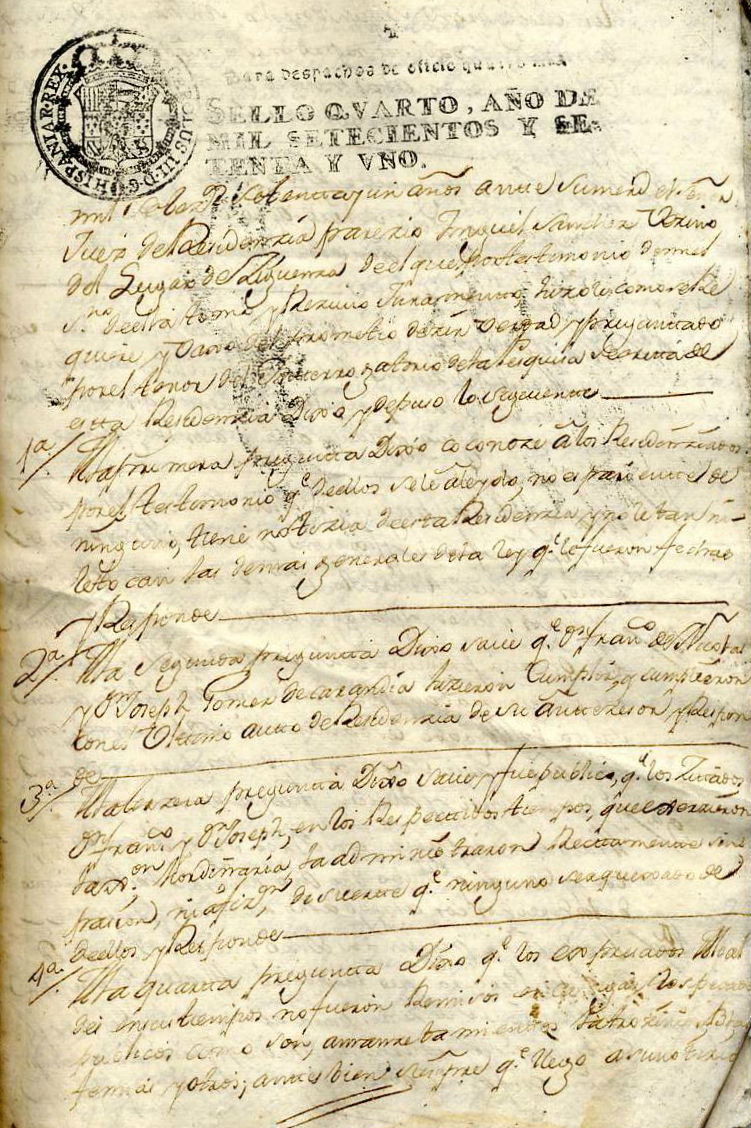 CAROLUS III D. G. HISPANIAR. REX.
Para despachos de oficio quatro mrs.
SELLO QVARTO, AÑO DE
MIL SETECIENTOS Y SE-
TENTA Y VNO.
mil setenta y un años ante su merd el
Juez de Residenzia parezio Miguel Sanchez Vezino
del Lugar de de el que por testimonio de mi el
s.no de ella tomó y Rezivio Juramento hizolo como se Re
quiere y vajo de el prometio dezir Verdad y preguntado
por el tenor del Interrogatorio de la pesquisa secreta de
esta Residenzia Dixo y depuso lo siguiente
1a/ A la primera pregunta Dixo conoze a los Residenziados
por el testimonio q.e de ellos se le a leydo, no es pariente de
ninguno, tiene notizia de esta Residenzia y no le tan ni
le tocan las demas generales de la ley q.e le fueron fechas
y Responde
2a/ A la segunda pregunta Dixo save q.e Dn Fran.co de
y Dn Joseph Gomez de carandia hizieron cumplir, y cumplieron
con el Ultimo auto de Residenzia de su antezesor y Respon
de
3a/ A la terzera pregunta Dixo save y fue publico, q.e los zitados
Dn Fran.co y Dn Joseph, en los Respectivos tiempos, que exerzieron
la Jur.on hordinaria, la administraron Rectamente sin
pasion, ni afiz.on de suerte q.e ninguno se a quejado de
de ellos y Responde
4a/ A la quarta pregunta Dixo q.e los expresados Alcal
des en sus tiempos, no fueron Remisos en los pecados
publicos como son, amanzebamientos
temas y otros; antes bien siempre q.e llego a su notizia